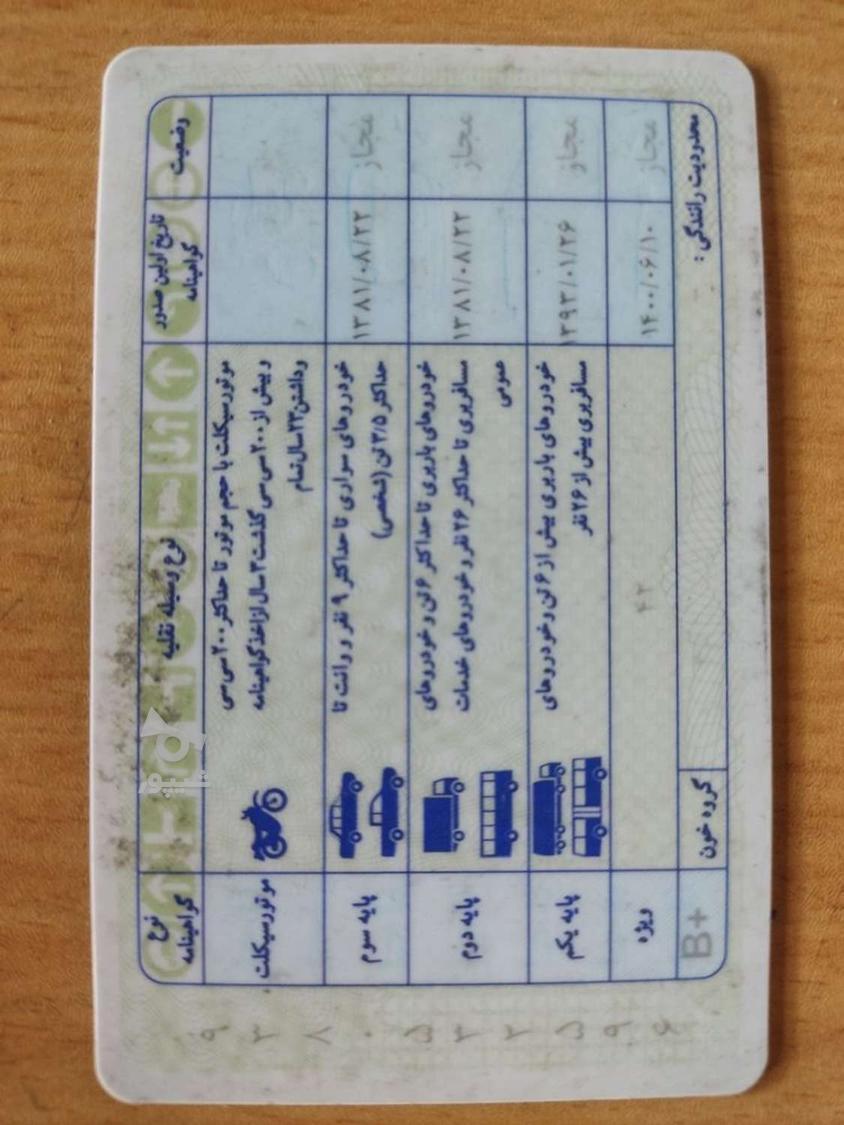 نوع گواهینامه
نوع وسیله نقلیه
تاریخ اولین صدور گواهینامه
وضعیت
موتورسیکلت
موتورسیکلت با حجم موتور تا حداکثر ۲۰۰ سی سی
و بیش از ۲۰۰ سی سی گذشت ۳ سال از اخذ گواهینامه
و داشتن ۲۳ سال تمام
پایه سوم
خودروهای سواری تا حداکثر ۹ نفر و وانت تا
حداکثر ۳/۵ تن (شخصی)
۱۳۸۱/۰۸/۲۲
مجاز
پایه دوم
خودروهای باربری تا حداکثر ۶ تن و خودروهای
مسافربری تا حداکثر ۲۶ نفر و خودروهای خدمات
عمومی
۱۳۸۱/۰۸/۲۲
مجاز
پایه یکم
خودروهای باربری بیش از ۶ تن و خودروهای
مسافربری بیش از ۲۶ نفر
۱۳۹۳/۰۱/۲۶
مجاز
ویژه
۴۲
۱۴۰۰/۰۶/۱۰
مجاز
B+
گروه خون
محدودیت رانندگی :
شیپور